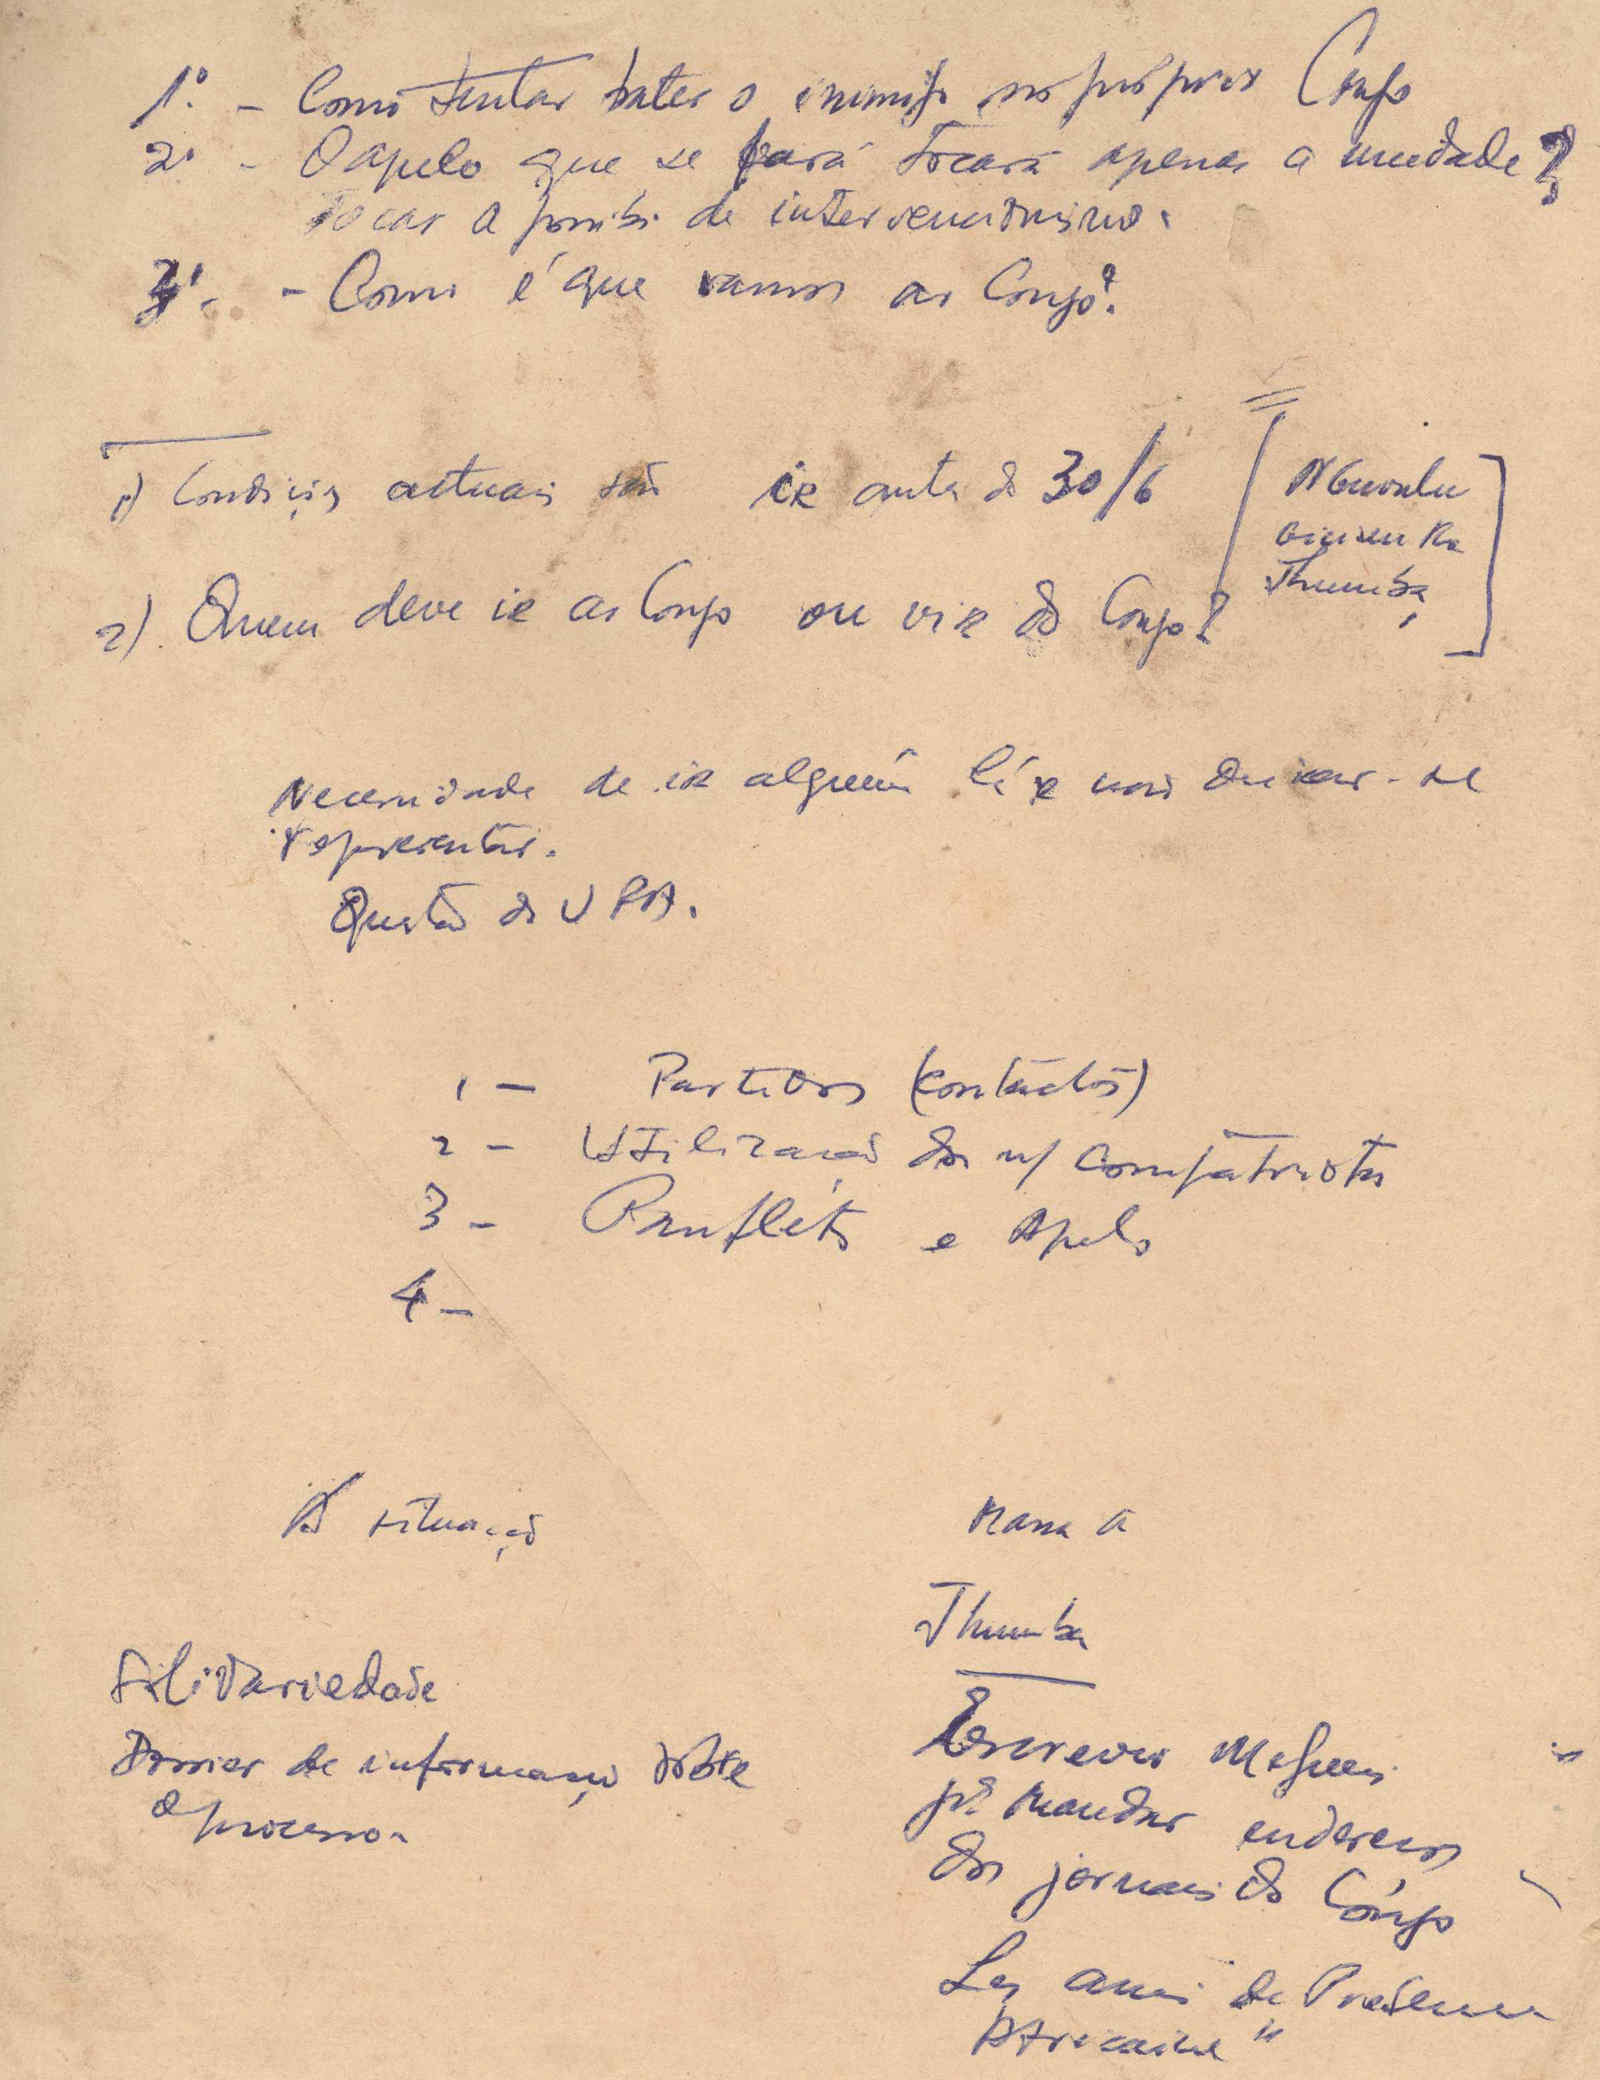 1º. - Como tentar bater o inimigo no próprio Congo
2º - O apelo que se fará tocará apenas a unidade?
Tocar a possib. de intervencionismo.
3º. - Como é que vamos ao Congo?
1) Condições actuais são ir antes do 30/6
2) Quem deve ir ao Congo ou vir do Congo?
Thumba
Necessidade de ir alguém lá e não deixar-se
representar.
Questão da UPA.
1 - Partidos (contactos)
2 - Utilização dos n/ compatriotas
3 - Panflets e Apelo
4 -
A situação
Massa
Thumba
Solidariedade
Dossier de informação sobre
o processo.
Escrever
pª mandar endereços
dos jornais do Congo
Les amis de Présence
Africaine"